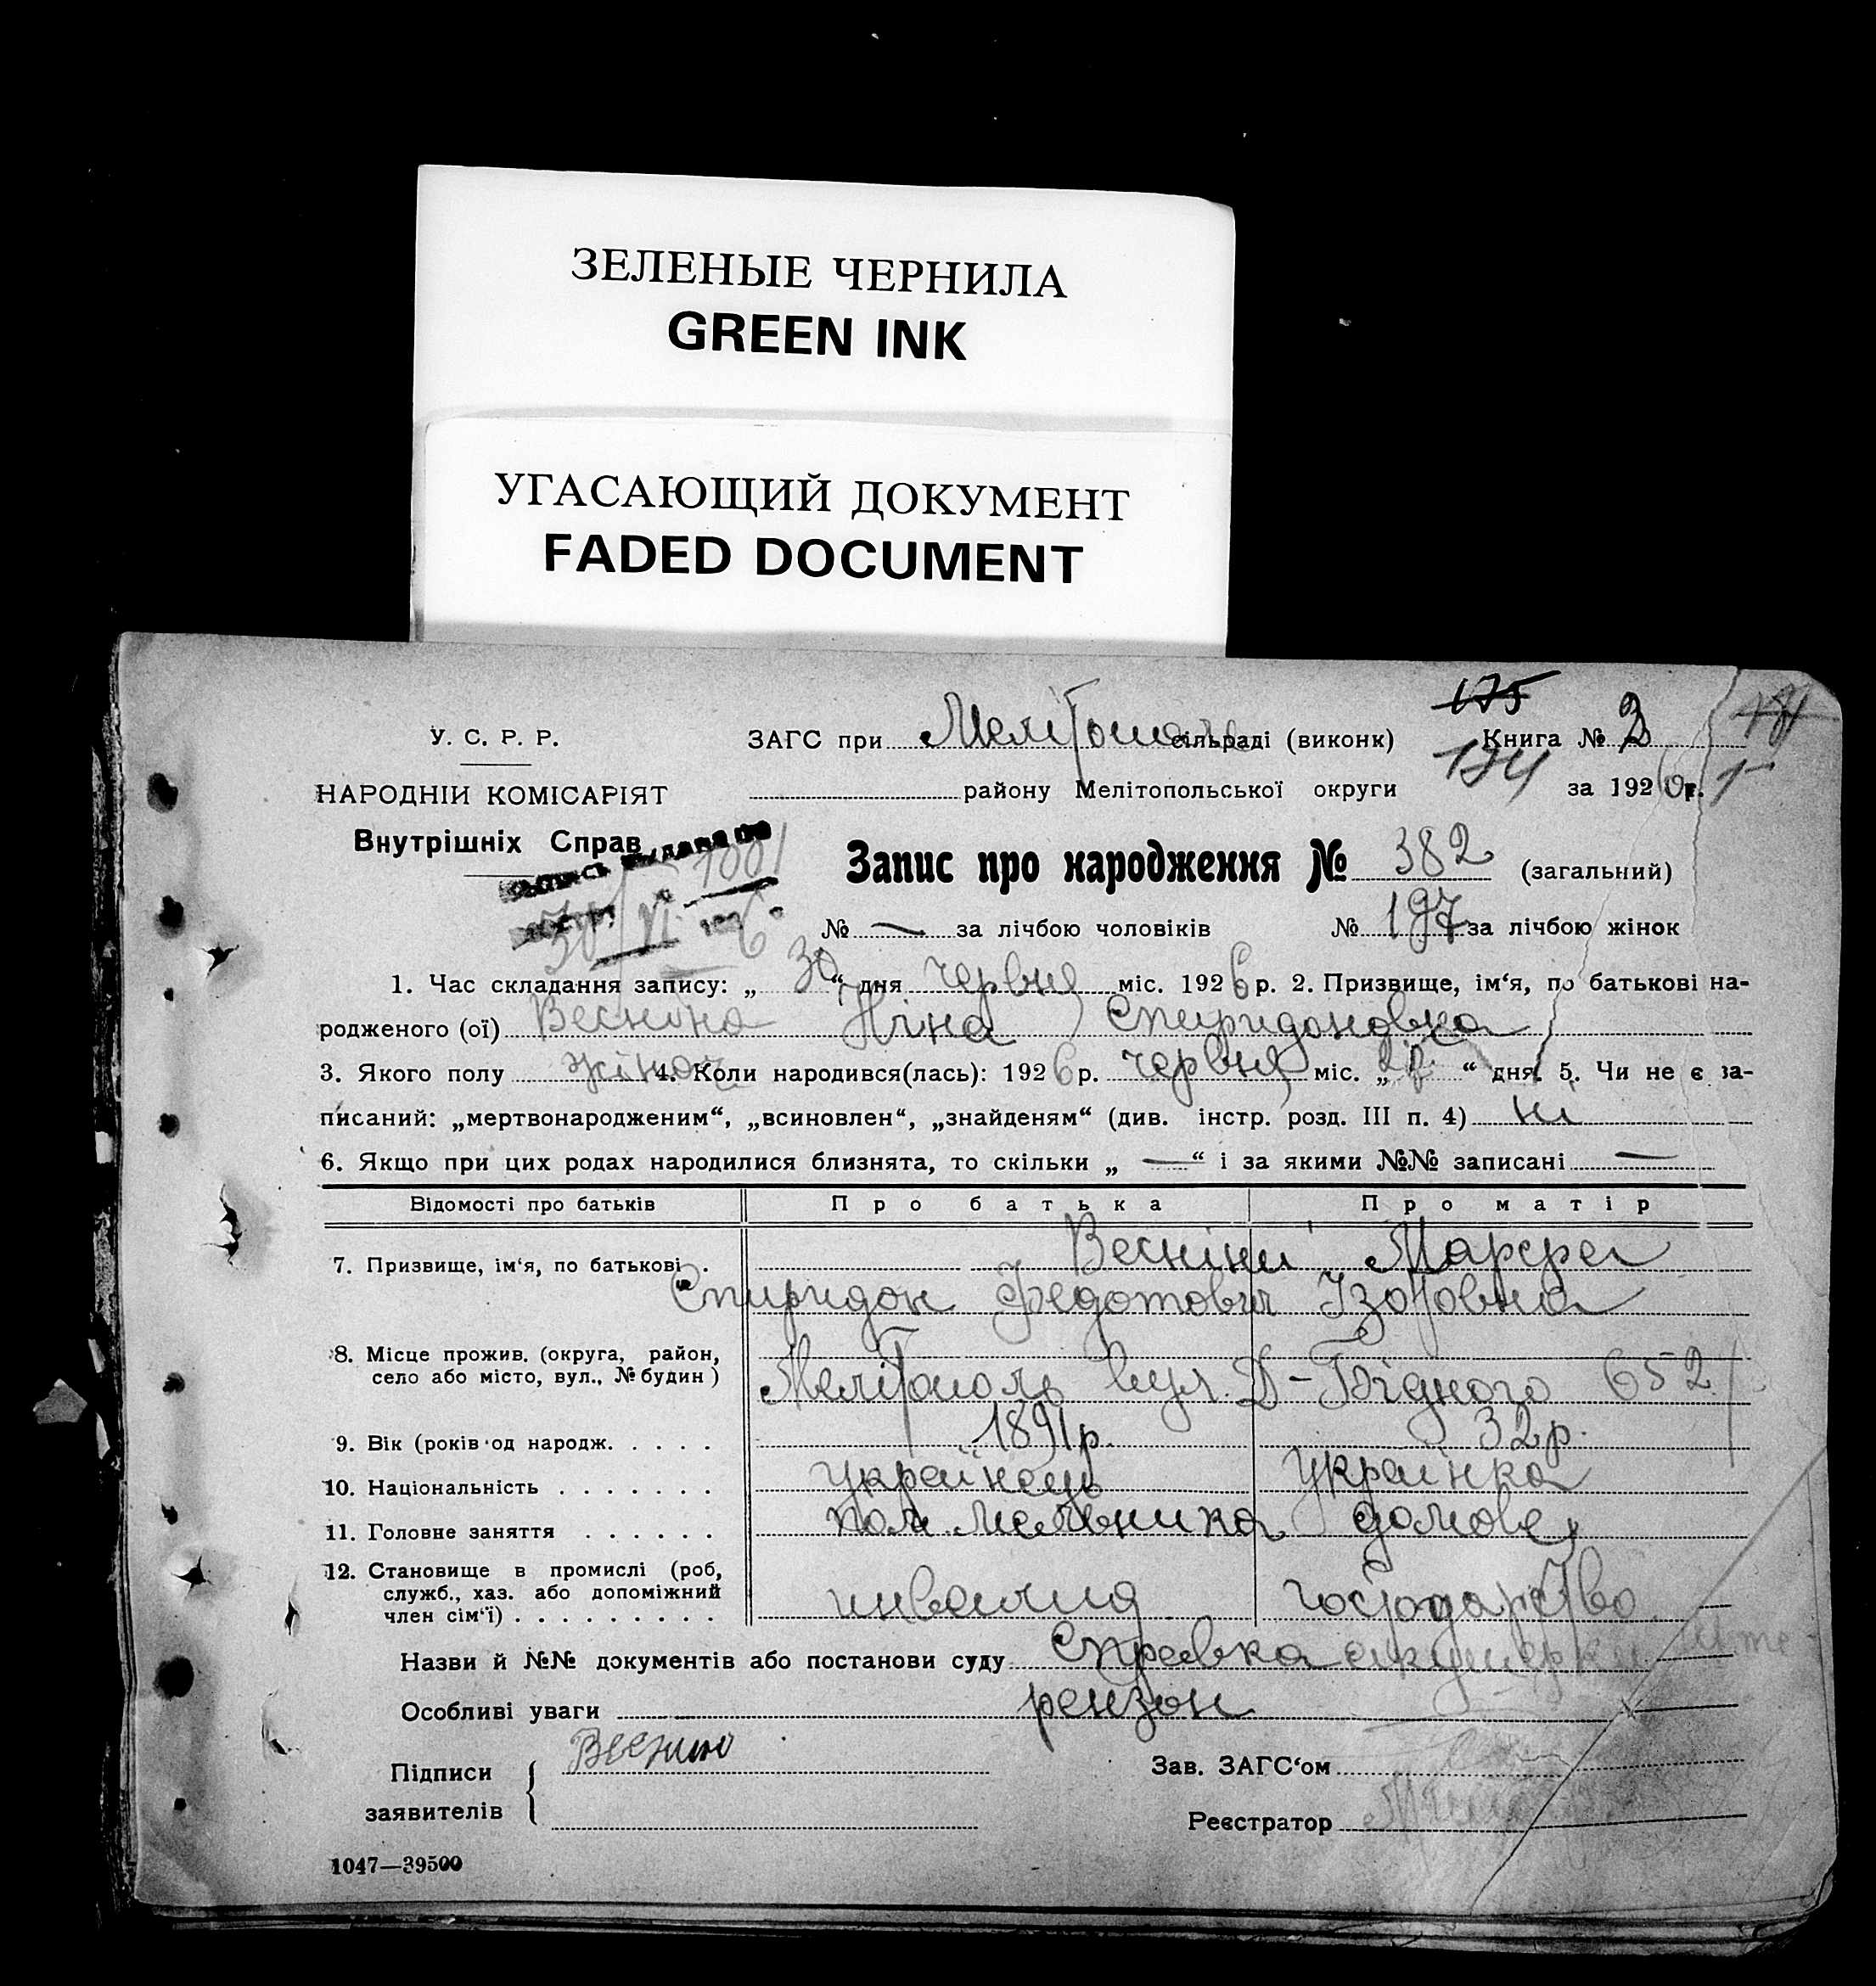 ЗЕЛЕНЫЕ ЧЕРНИЛА
GREEN INK
УГАСАЮЩИЙ ДОКУМЕНТ
FADED DOCUMENT
175
У. С. Р. Р. ЗАГС при Мелітополь сільраді (виконк) Книга № 2
НАРОДНІЙ КОМІСАРІЯТ району Мелітопольської округи 174 за 1926 р.
Внутрішніх Справ
Запис про народження № 382 (загальний)
1001
30/VI 1926
№ — за лічбою чоловіків № 197 за лічбою жінок
1. Час складання запису: „ 30 “ дня червня міс. 1926 р. 2. Призвище, ім‘я, по батькові на-
родженого (ої) Весніна Ніна Спиридоновна
3. Якого полу жіноч 4. Коли народився(лась): 1926 р. червня міс. „ “ дня. 5. Чи не є за-
писаний: „мертвонародженим“, „всиновлен“, „знайденям“ (див. інстр. розд. III п. 4) ні
6. Якщо при цих родах народилися близнята, то скільки „ — “ і за якими №№ записані —
Відомості про батьків Про батька Про матір
7. Призвище, ім‘я, по батькові Весніни Марфа
Спиридон Федотович Ізотовна
8. Місце прожив. (округа, район,
село або місто, вул., № будин) Мелітополь вул. Д-Бідного 652
9. Вік (років од народж. 1891 р. 32 р.
10. Національність українець українка
11. Головне заняття пом. мельника домове
12. Становище в промислі (роб,
служб., хаз. або допоміжний
член сім‘ї) инвалид господарство
Назви й №№ документів або постанови суду Справка акушерки
Особливі уваги рензон
Підписи
заявителів Веснин
Зав. ЗАГС‘ом
Реєстратор
1047—39500